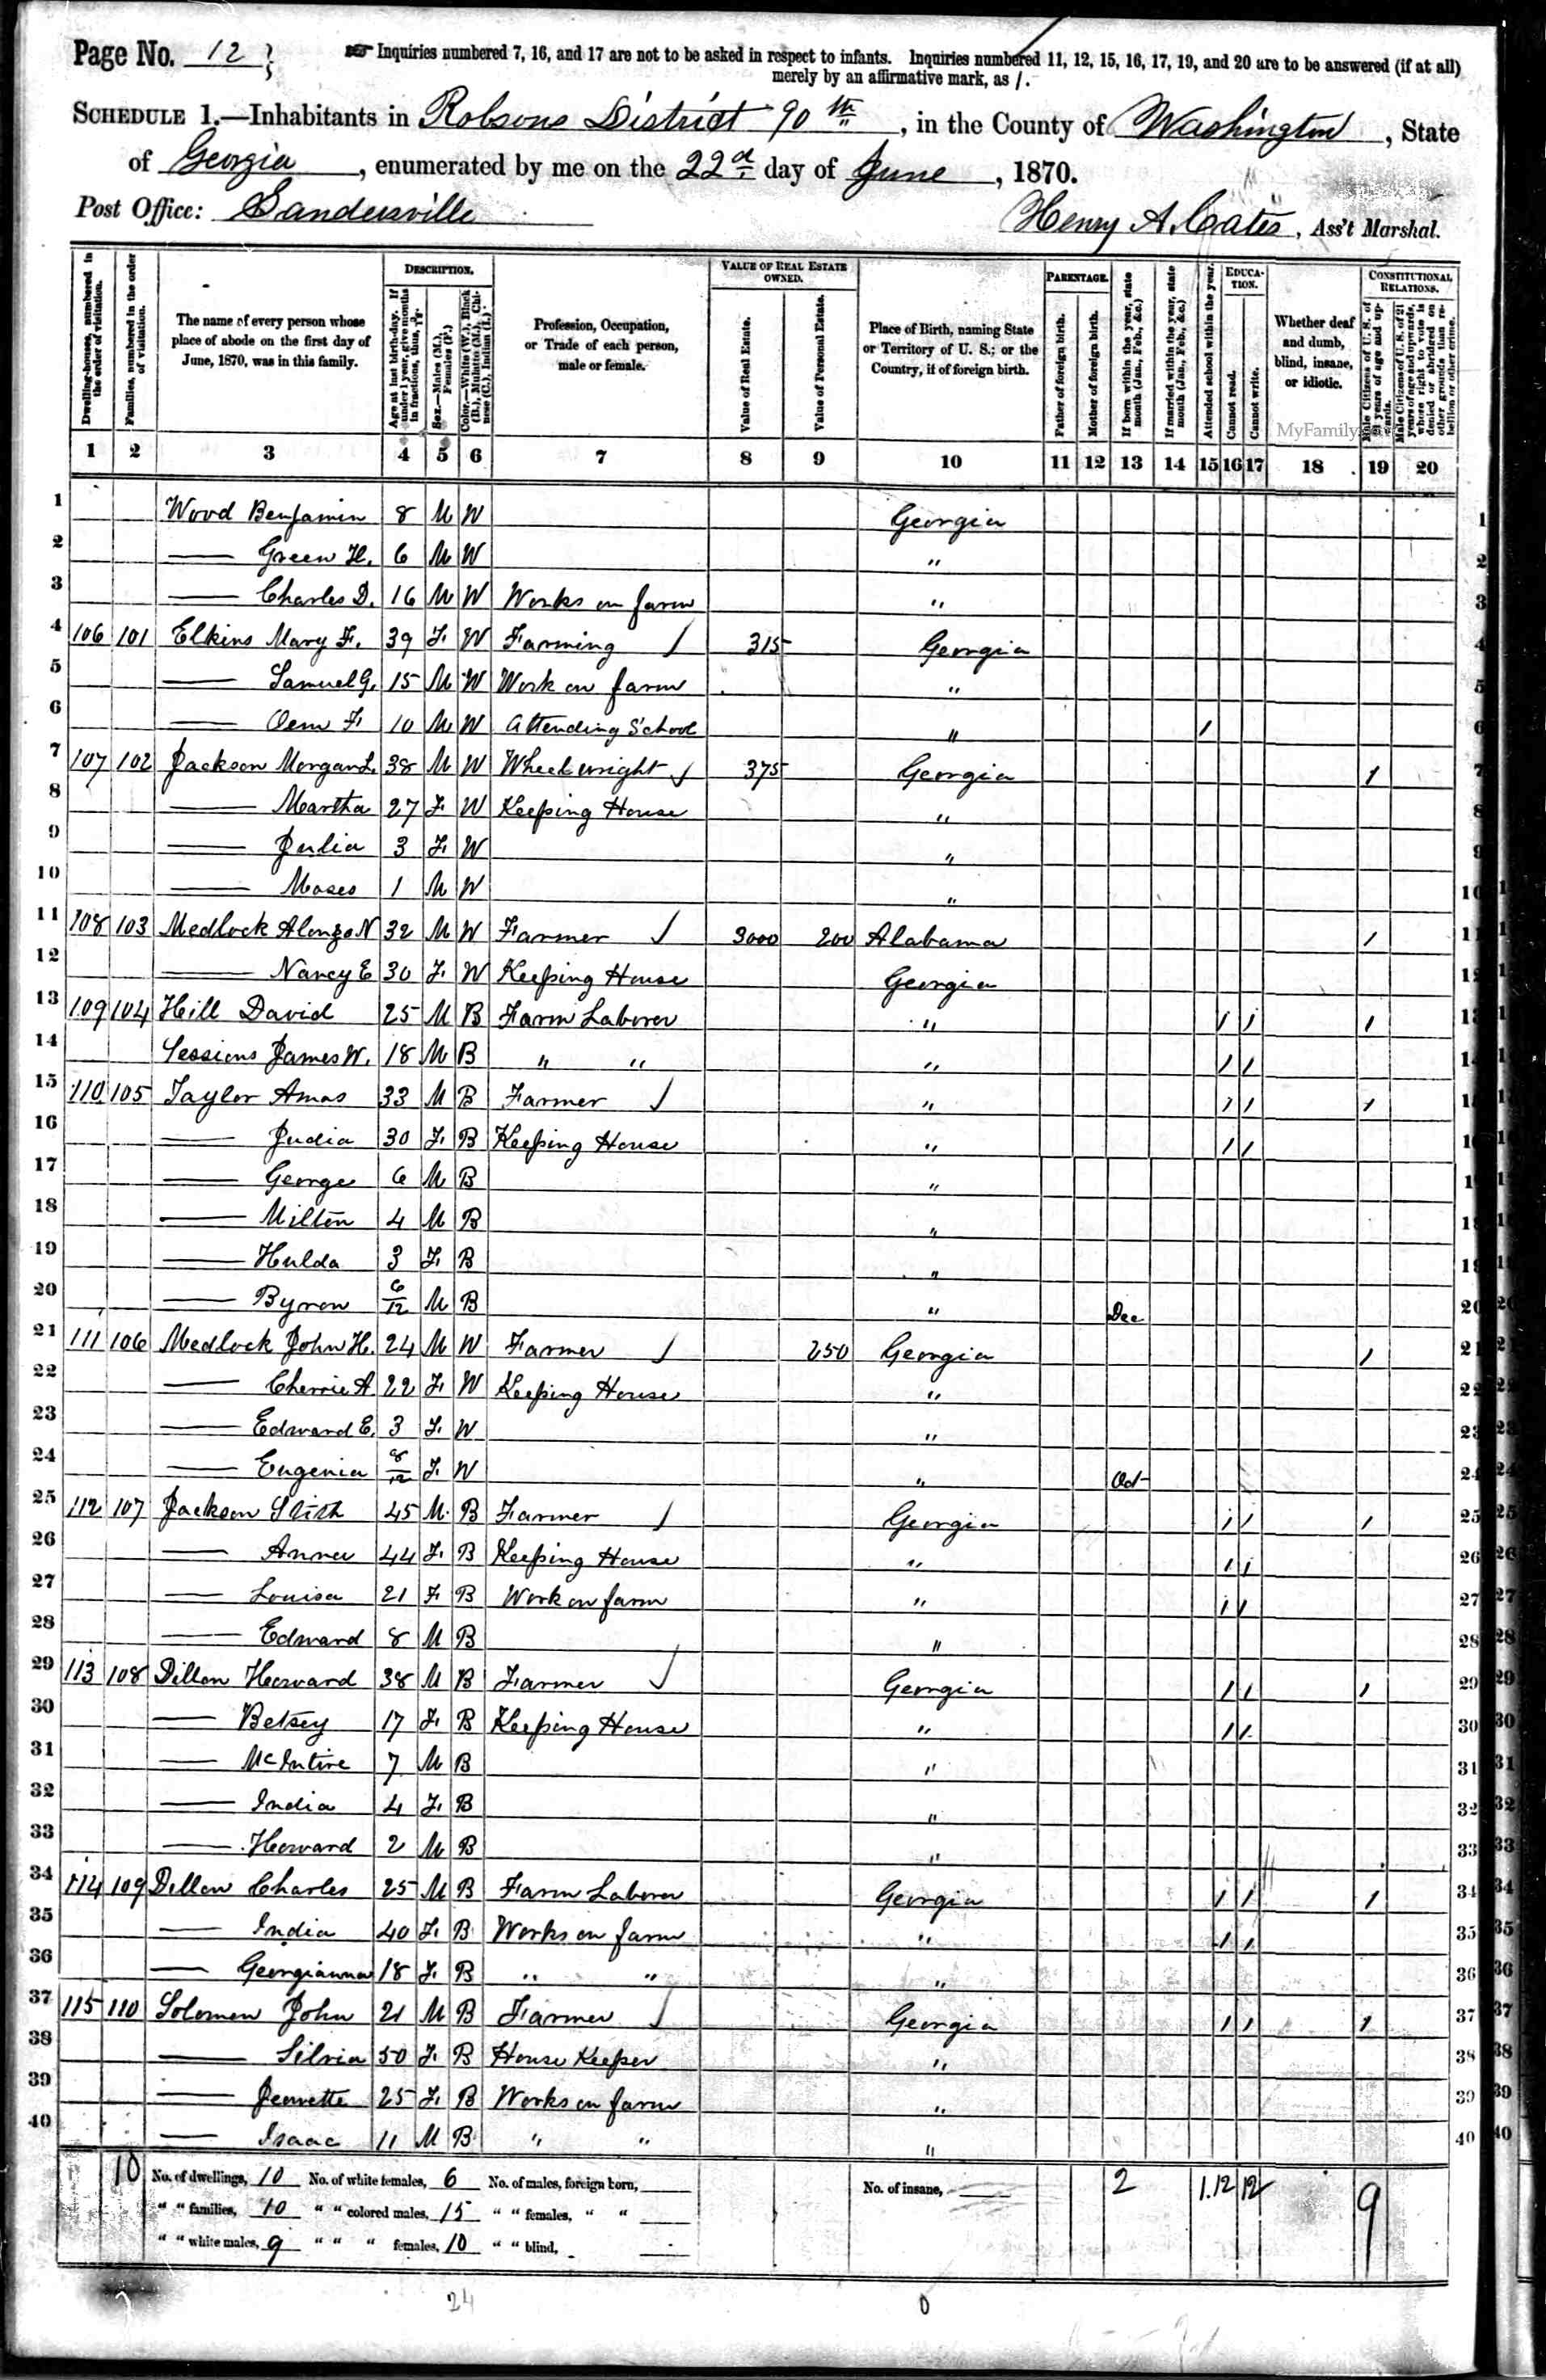 Page No. 12
Inquiries numbered 7, 16, and 17 are not to be asked in respect to infants. Inquiries numbered 11, 12, 15, 16, 17, 19, and 20 are to be answered (if at all)
merely by an affirmative mark, as /.
SCHEDULE 1.—Inhabitants in Robsons District 90th, in the County of Washington, State
of Georgia, enumerated by me on the 22d day of June, 1870.
Post Office: Sandersville
Henry A. Cates, Ass't Marshal.
Dwelling-houses, numbered in the order of visitation.
Families, numbered in the order of visitation.
The name of every person whose place of abode on the first day of June, 1870, was in this family.
DESCRIPTION.
Age at last birth-day. If under 1 year, give months in fractions, thus,
Sex.—Males (M.), Females (F.)
Color.—White (W.), Black (B.), Mulatto (M.), Chinese (C.), Indian (I.)
Profession, Occupation, or Trade of each person, male or female.
VALUE OF REAL ESTATE OWNED.
Value of Real Estate.
Value of Personal Estate.
Place of Birth, naming State or Territory of U. S.; or the Country, if of foreign birth.
PARENTAGE.
Father of foreign birth.
Mother of foreign birth.
If born within the year, state month (Jan., Feb., &c.)
If married within the year, state month (Jan., Feb., &c.)
Attended school within the year.
EDUCATION.
Cannot read.
Cannot write.
Whether deaf and dumb, blind, insane, or idiotic.
MyFamily
CONSTITUTIONAL RELATIONS.
Male Citizens of U. S. of 21 years of age and upwards.
Male Citizens of U. S. of 21 years of age and upwards, whose right to vote is denied or abridged on other grounds than rebellion or other crime.
1 2 3 4 5 6 7 8 9 10 11 12 13 14 15 16 17 18 19 20
1 Wood Benjamin 8 M W Georgia 1
2 — Green H. 6 M W " 2
3 — Charles D. 16 M W Works on farm " 3
4 106 101 Elkins Mary F. 39 F. W Farming / 315 Georgia 4
5 — Samuel G. 15 M W Work on farm " 5
6 — F. 10 M W Attending School " / 6
7 107 102 Jackson Morgan L. 38 M W Wheelwright / 375 Georgia / 7
8 — Martha 27 F. W Keeping House " 8
9 — Julia 3 F. W " 9
10 — Moses 1 M W " 10
11 108 103 Medlock Alonzo N 32 M W Farmer / 3000 200 Alabama / 11
12 — Nancy E 30 F. W Keeping House Georgia 12
13 109 104 Hill David 25 M B Farm Laborer " / / / 13
14 Sessions James W. 18 M B " " " / / 14
15 110 105 Taylor Amos 33 M B Farmer / " / / / 15
16 — Judia 30 F. B Keeping House " / / 16
17 — George 6 M B " 17
18 — Milton 4 M B " 18
19 — Hulda 3 F. B " 19
20 — Byron 6/12 M B " Dec 20
21 111 106 Medlock John H. 24 M W Farmer / 250 Georgia / 21
22 — Cherrie A 22 F. W Keeping House " 22
23 — Edward E. 3 F. W " 23
24 — Eugenia 8/12 F. W " Oct 24
25 112 107 Jackson 45 M. B Farmer / Georgia / / / 25
26 — Anner 44 F. B Keeping House " / / 26
27 — Louisa 21 F. B Work on farm " / / 27
28 — Edward 8 M B " 28
29 113 108 Dillon Howard 38 M B Farmer / Georgia / / / 29
30 — Betsey 17 F. B Keeping House " / / 30
31 — McIntire 7 M B " 31
32 — India 4 F. B " 32
33 — Howard 2 M B " 33
34 114 109 Dillon Charles 25 M B Farm Laborer Georgia / / / 34
35 — India 40 F. B Works on farm " / / 35
36 — Georgianna 18 F. B " " " 36
37 115 110 Solomon John 21 M B Farmer / Georgia / / / 37
38 — Silvia 50 F. B House Keeper " 38
39 — Jeanette 25 F. B Works on farm " 39
40 — Isaac 11 M B " " " 40
10 No. of dwellings, 10 No. of white females, 6 No. of males, foreign born, No. of insane, 2 1. 12 12 9
" " families, 10 " " colored males, 15 " " females, " "
" " white males, 9 " " " females, 10 " " blind,
24 0